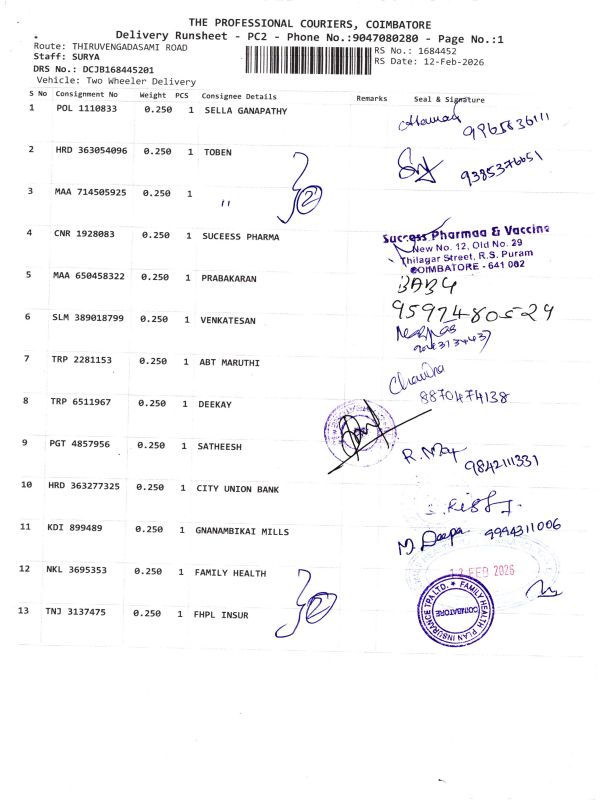 THE PROFESSIONAL COURIERS, COIMBATORE
Delivery Runsheet - PC2 - Phone No.:9047080280 - Page No.:1
Route: THIRUVENGADASAMI ROAD
RS No.: 1684452
Staff: SURYA
RS Date: 12-Feb-2026
DRS No.: DCJB168445201
Vehicle: Two Wheeler Delivery
S No Consignment No Weight PCS Consignee Details Remarks Seal & Signature
1 POL 1110833 0.250 1 SELLA GANAPATHY
2 HRD 363054096 0.250 1 TOBEN
9385376651
3 MAA 714505925 0.250 1 "
2
4 CNR 1928083 0.250 1 SUCEESS PHARMA
Success Pharmaa & Vaccine
New No. 12, Old No. 29
Thilagar Street, R.S. Puram
COIMBATORE - 641 002
5 MAA 650458322 0.250 1 PRABAKARAN
BABU
9597480529
6 SLM 389018799 0.250 1 VENKATESAN
7 TRP 2281153 0.250 1 ABT MARUTHI
Chandra
8870474138
8 TRP 6511967 0.250 1 DEEKAY
9 PGT 4857956 0.250 1 SATHEESH
9842111331
10 HRD 363277325 0.250 1 CITY UNION BANK
11 KDI 899489 0.250 1 GNANAMBIKAI MILLS
M. Deepa 9994311006
12 NKL 3695353 0.250 1 FAMILY HEALTH
12 FEB 2026
13 TNJ 3137475 0.250 1 FHPL INSUR
2
FAMILY HEALTH PLAN INSURANCE TPA LTD.
COIMBATORE